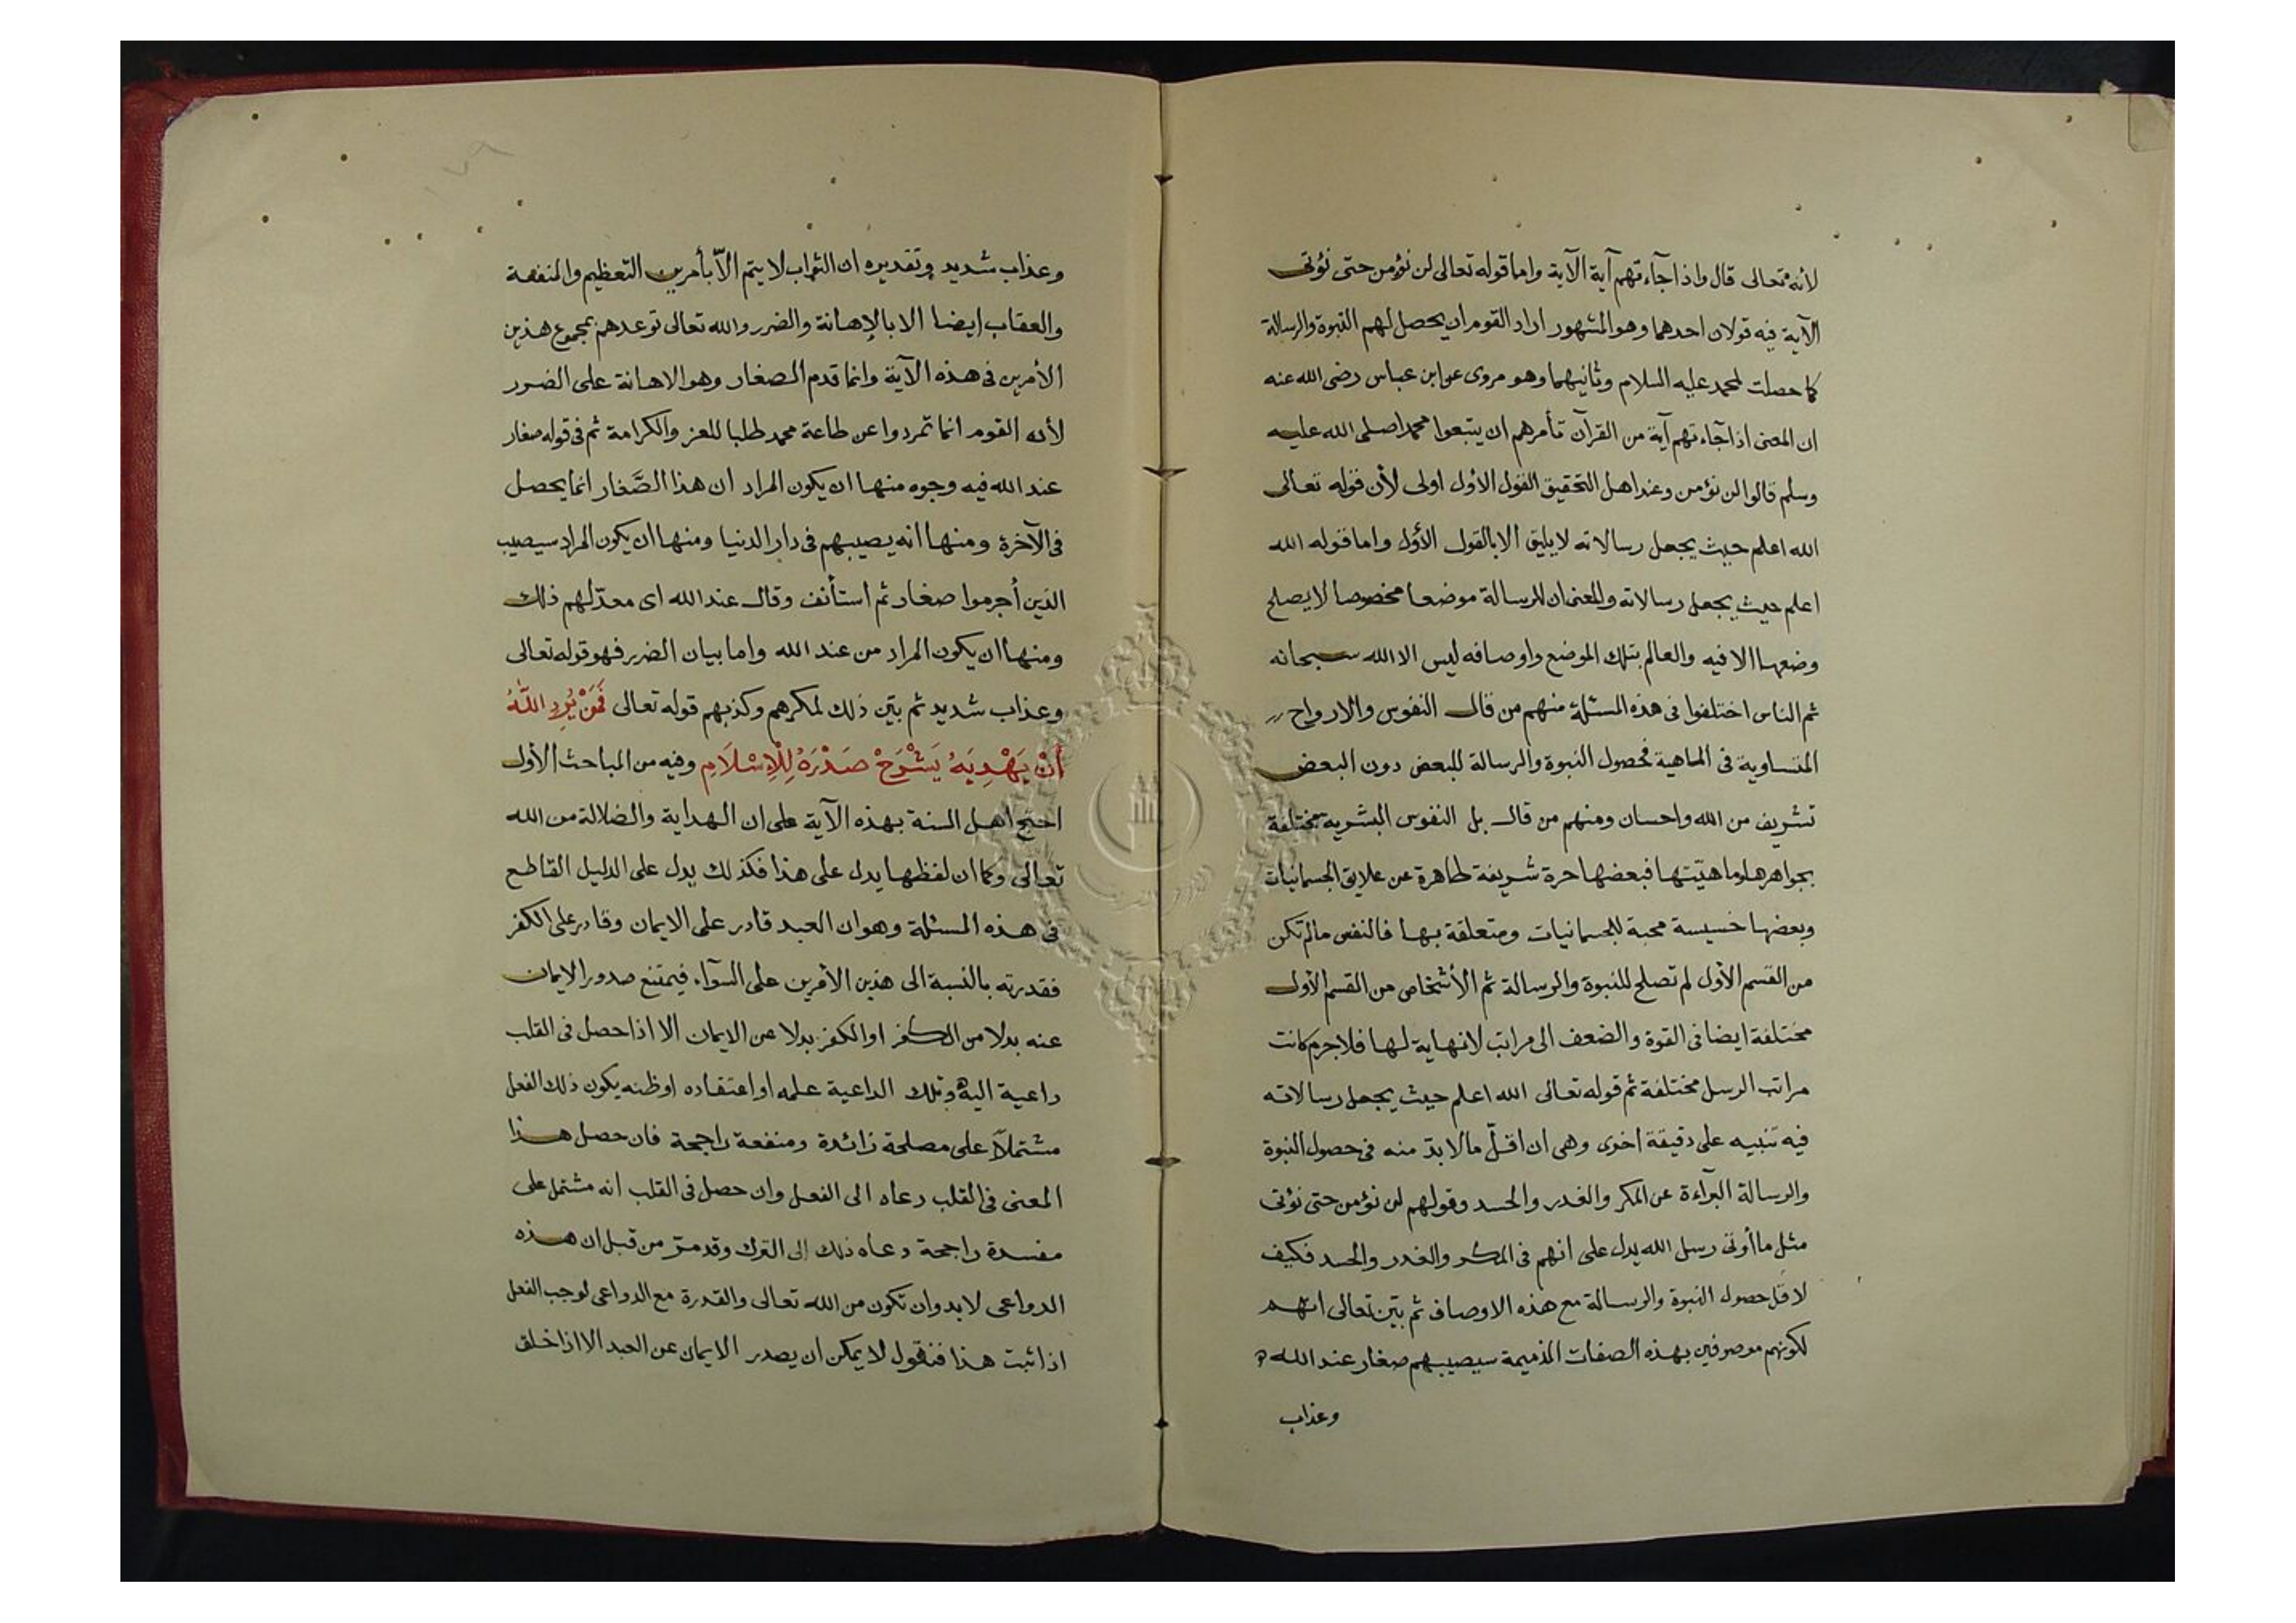 لأنه تعالى قال واذا جآءتهم آية الآية واما قوله تعالى لن نؤمن حتى نؤتى
الآية فيه قولان احدهما وهو المشهور اراد القوم ان يحصل لهم النبوة والرسالة
كما حصلت لمحمد عليه السلام وثانيهما وهو مروى عن ابن عباس رضى الله عنه
ان المعنى اذا جآءتهم آية من القرآن تأمرهم ان يتبعوا محمدا صلى الله عليه
وسلم قالوا لن نؤمن وعند اهل التحقيق القول الاول اولى لأن قوله تعالى
الله اعلم حيث يجعل رسالاته لا يليق الا بالقول الأول واما قوله الله
اعلم حيث يجعل رسالاته والمعنى ان للرسالة موضعا مخصوصا لا يصلح
وضعها الا فيه والعالم بتلك الموضع واوصافه ليس الا الله سبحانه
ثم الناس اختلفوا فى هذه المسئلة منهم من قال النفوس والارواح
المتساوية فى الماهية فحصول النبوة والرسالة للبعض دون البعض
تشريف من الله واحسان ومنهم من قال بل النفوس البشريه مختلفة
بجواهرها وماهيتها فبعضها حرة شريفة طاهرة عن علايق الجسمانيات
وبعضها خسيسة محبة للجسمانيات ومتعلقة بها فالنفس مالم تكن
من القسم الأول لم تصلح للنبوة والرسالة ثم الأشخاص من القسم الأول
مختلفة ايضا فى القوة والضعف الى مراتب لا نهاية لها فلا جرم كانت
مراتب الرسل مختلفة ثم قوله تعالى الله اعلم حيث يجعل رسالاته
فيه تنبيه على دقيقة اخرى وهى ان اقلّ ما لا بدّ منه فى حصول النبوة
والرسالة البرآءة عن المكر والغدر والحسد وقولهم لن نؤمن حتى نؤتى
مثل ما أوتى رسل الله يدل على انهم فى المكر والغدر والحسد فكيف
لا قل حصول النبوة والرسالة مع هذه الاوصاف ثم بيّن تعالى انهم
لكونهم موصوفين بهذه الصفات الذميمة سيصيبهم صغار عند الله
وعذاب
وعذاب شديد وتقديره ان الثواب لا يتم الّا بأمرين التعظيم والمنفعة
والعقاب ايضا الا بالإهانة والضرر والله تعالى توعدهم بمجموع هذين
الأمرين فى هذه الآية وانما قدم الصغار وهو الاهانة على الضرر
لأن القوم انما تمردوا عن طاعة محمد طلبا للعز والكرامة ثم فى قوله صغار
عند الله فيه وجوه منها ان يكون المراد ان هذا الصَّغار انما يحصل
فى الآخرة ومنها انه يصيبهم فى دار الدنيا ومنها ان يكون المراد سيصيب
الذين أجرموا صغار ثم استأنف وقال عند الله اى معدّ لهم ذلك
ومنها ان يكون المراد من عند الله واما بيان الضرر فهو قوله تعالى
وعذاب شديد ثم بيّن ذلك لمكرهم وكذبهم قوله تعالى فَمَنْ يُرِدِ اللّٰهُ
أَنْ يَهْدِيَهُ يَشْرَحْ صَدْرَهُ لِلْاِسْلَامِ وفيه من المباحث الأول
احتج اهل السنة بهذه الآية على ان الهداية والضلالة من الله
تعالى وكما ان لفظها يدل على هذا فكذلك يدل على الدليل القاطع
فى هذه المسئلة وهو ان العبد قادر على الايمان وقادر على الكفر
فقدرته بالنسبة الى هذين الأمرين على السوآء فيمتنع صدور الايمان
عنه بدلا من الكفر او الكفر بدلا عن الايمان الا اذا حصل فى القلب
داعية اليه وتلك الداعية علمه او اعتقاده او ظنه يكون ذلك الفعل
مشتملاً على مصلحة زائدة ومنفعة راجحة فان حصل هذا
المعنى فى القلب دعاه الى الفعل وان حصل فى القلب انه مشتمل على
مفسدة راجحة دعاه ذلك إلى الترك وقد مرّ من قبل ان هذه
الدواعى لا بد وان تكون من الله تعالى والقدرة مع الدواعى لوجب الفعل
اذا ثبت هذا فنقول لا يمكن ان يصدر الايمان عن العبد الا اذا خلق